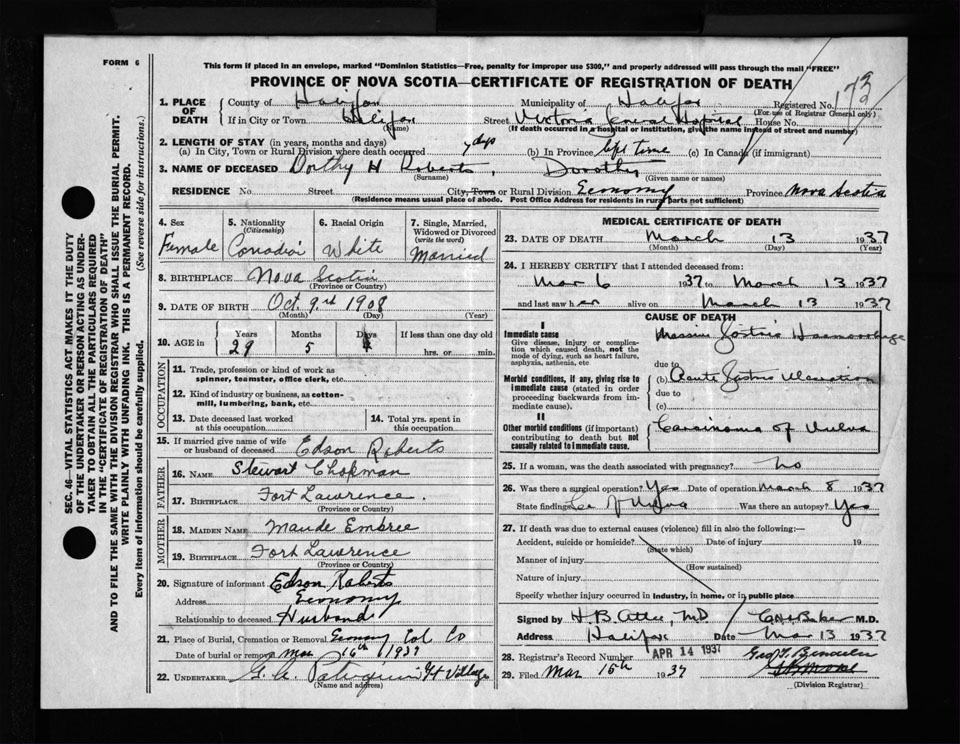 FORM 6
This form if placed in an envelope, marked "Dominion Statistics—Free, penalty for improper use $300," and properly addressed will pass through the mail "FREE"
PROVINCE OF NOVA SCOTIA—CERTIFICATE OF REGISTRATION OF DEATH
173
1. PLACE OF DEATH { County of Halifax Municipality of Halifax Registered No.
(For use of Registrar General only)
If in City or Town Halifax Street Victoria General Hospital House No.
(Name) (If death occurred in a hospital or institution, give the name instead of street and number)
2. LENGTH OF STAY (in years, months and days)
(a) In City, Town or Rural Division where death occurred 7 days (b) In Province life time (c) In Canada (if immigrant)
3. NAME OF DECEASED Dorthy H Roberts, Dorothy
(Surname) (Given name or names)
RESIDENCE No. Street City, Town or Rural Division Economy Province Nova Scotia
(Residence means usual place of abode. Post Office Address for residents in rural parts not sufficient)
4. Sex
Female
5. Nationality
(Citizenship)
6. Racial Origin
White
7. Single, Married, Widowed or Divorced
(write the word)
Married
8. BIRTHPLACE Nova Scotia
(Province or Country)
9. DATE OF BIRTH Oct. 9rd 1908
(Month) (Day) (Year)
10. AGE in Years Months Days If less than one day old
29 5 4 hrs. or min.
OCCUPATION
11. Trade, profession or kind of work as spinner, teamster, office clerk, etc.
12. Kind of industry or business, as cotton-mill, lumbering, bank, etc.
13. Date deceased last worked at this occupation
14. Total yrs. spent in this occupation
15. If married give name of wife or husband of deceased Edson Roberts
FATHER
16. NAME Stewart Chapman
17. BIRTHPLACE Fort Lawrence.
(Province or Country)
MOTHER
18. MAIDEN NAME Maude Embree
19. BIRTHPLACE Fort Lawrence
(Province or Country)
20. Signature of informant Edson Roberts
Address Economy
Relationship to deceased Husband
21. Place of Burial, Cremation or Removal Economy Col. Co
Date of burial or removal Mar 16th 1937
22. UNDERTAKER G. A. Patriquin Gt Village
(Name and address)
MEDICAL CERTIFICATE OF DEATH
23. DATE OF DEATH March 13 1937
(Month) (Day) (Year)
24. I HEREBY CERTIFY that I attended deceased from:
Mar 6 1937 to March 13 1937
and last saw her alive on March 13 1937
CAUSE OF DEATH
I
Immediate cause
Give disease, injury or complication which caused death, not the mode of dying, such as heart failure, asphyxia, asthenia, etc
Massive Gastric Haemorrhage
due to
Morbid conditions, if any, giving rise to immediate cause (stated in order proceeding backwards from immediate cause).
(b) Acute Gastric Ulceration
due to
(c)
II
Other morbid conditions (if important) contributing to death but not causally related to immediate cause.
Carsinoma of Vulva
25. If a woman, was the death associated with pregnancy? No
26. Was there a surgical operation? Yes Date of operation March 8 1937
State findings Ca of Vulva Was there an autopsy? Yes
27. If death was due to external causes (violence) fill in also the following:—
Accident, suicide or homicide? Date of injury 19
(State which)
Manner of injury
(How sustained)
Nature of injury
Specify whether injury occurred in industry, in home, or in public place
Signed by H. B. Atlee, M.D. Baker M.D.
Address Halifax Date Mar 13 1937
28. Registrar's Record Number APR 14 1937
29. Filed Mar 15th 1937
(Division Registrar)
SEC. 46—VITAL STATISTICS ACT MAKES IT THE DUTY OF THE UNDERTAKER OR PERSON ACTING AS UNDERTAKER TO OBTAIN ALL THE PARTICULARS REQUIRED IN THE "CERTIFICATE OF REGISTRATION OF DEATH" AND TO FILE THE SAME WITH THE DIVISION REGISTRAR WHO SHALL ISSUE THE BURIAL PERMIT.
WRITE PLAINLY WITH UNFADING INK. THIS IS A PERMANENT RECORD.
Every item of information should be carefully supplied. (See reverse side for instructions.)